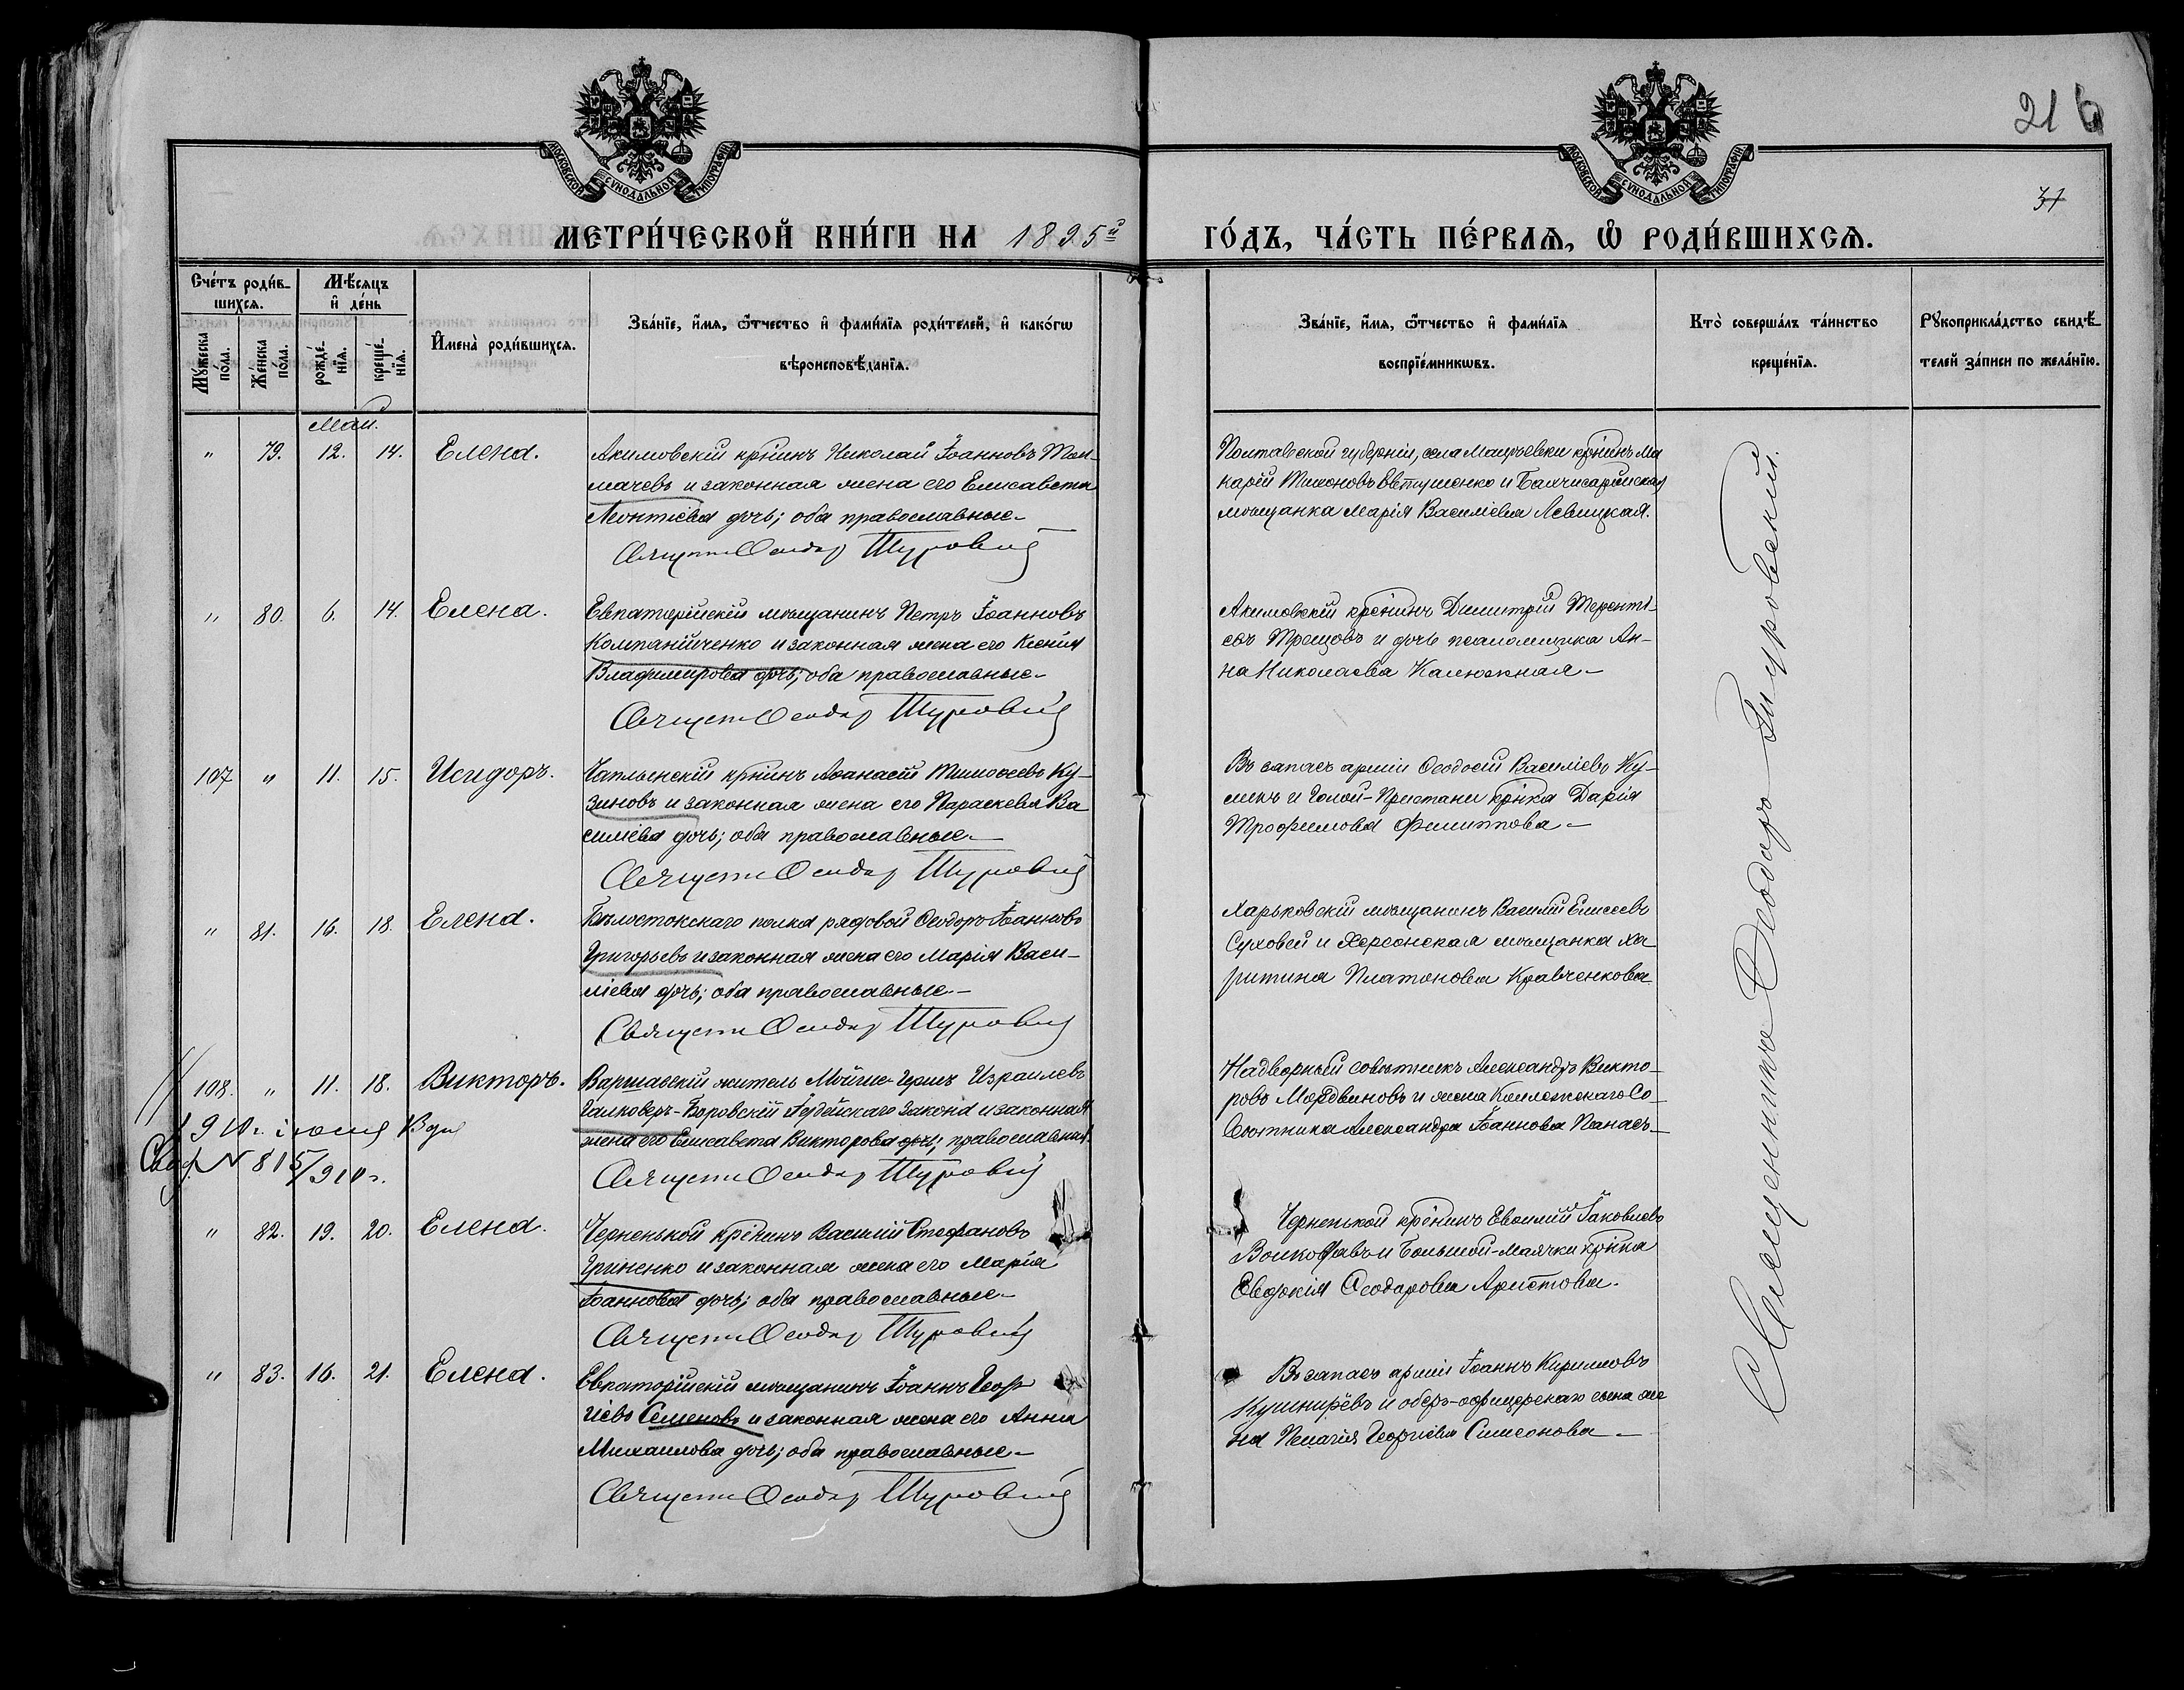 216
31
МОСКОВСКОЙ СѴНОДАЛЬНОЙ ТИПОГРАФІИ
МОСКОВСКОЙ СѴНОДАЛЬНОЙ ТИПОГРАФІИ
МЕТРИ́ЧЕСКОЙ КНИ́ГИ НА 1895й ГО́ДЪ, ЧА́СТЬ ПЕ́РВАѦ, Ѽ РОДИ́ВШИХСѦ.
Сче́тъ роди́в-
шихсѧ.
Мꙋ́жеска по́ла.
Же́нска по́ла.
Мѣ́сѧцъ
и҆ де́нь
рожде́-
нїѧ.
креще́-
нїѧ.
И҆мена̀ роди́вшихсѧ.
Зва́нїе, и҆́мѧ, ѻ҆́тчество и҆ фами́лїѧ роди́телей, и҆ како́гѡ
вѣроисповѣ́данїѧ.
Зва́нїе, и҆́мѧ, ѻ҆́тчество и҆ фами́лїѧ
воспрїе́мникѡвъ.
Кто̀ соверша́лъ та́инство
креще́нїѧ.
Рꙋкоприкла́дство свидѣ́-
телей за́писи по жела́нїю.
Май.
" 79. 12. 14. Елена.
Акимовскій кр̃нинъ Николай Іоанновъ Тол-
мачевъ и законная жена его Елисавета
Леонтіева дочь; оба православные.-
Священ Ѳеодор Туровский
Полтавской губерніи, села кр̃нинъ Ма
карій Тихоновъ Евтушенко и Бахчисарайская
мѣщанка Марія Василіева Левицкая.
" 80. 6. 14. Елена.
Евпаторійскій мѣщанинъ Петръ Іоанновъ
Компанійченко и законная жена его Ксенія
Владимирова дочь; оба православные.-
Священ Ѳеодор Туровский
Акимовскій кр̃нинъ Димитрій Теренті-
евъ Трещовъ и дочь псаломщика Ан-
на Николаева Калюжная.-
107 " 11. 15. Исидоръ.
Чаплынскій кр̃нинъ Аѳанасій Тимоѳеевъ Ку-
зиновъ и законная жена его Параскева Ва
силіева дочь; оба православные.-
Священ Ѳеодор Туровский
Въ запасѣ арміи Ѳеодосій Василіевъ Ку-
и Голой-Пристани кр̃нка Дарія
Трофимова Филиппова.-
" 81. 16. 18. Елена.
Бѣлостокскаго полка рядовой Ѳеодоръ Іоанновъ
Григорьевъ и законная жена его Марія Васи-
ліева дочь; оба православные.-
Священ Ѳеодор Туровский
Харьковскій мѣщанинъ Василій Елисеевъ
Суховей и Херсонская мѣщанка Ха-
ритина Платонова Кравченкова
108. " 11. 18. Викторъ.
Варшавскій житель Мойше-Гершъ Израилевъ
Галковеръ-Боровскій Іудейскаго закона и законная
жена его Елисавета Викторова дочь; православная.
Священ Ѳеодор Туровский
Надворный совѣтникъ Александръ Викто-
ровъ Мордвиновъ и жена Коллежскаго Со-
вѣтника Александра Іоаннова Панаѣ-
1910г. іюня
N 815/910г.
" 82. 19. 20. Елена.
Черненькой кр̃нинъ Василій Стефановъ
Гриненко и законная жена его Марія
Іоаннова дочь; оба православные.-
Священ Ѳеодор Туровский
кр̃нинъ Іаковлевъ
и Большой-Маячки кр̃нка
Евдокія Ѳеодорова Аристова.
" 83. 16. 21. Елена.
Евпаторійскій мѣщанинъ Іоаннъ Геор
гіевъ Семеновъ и законная жена его Анна
Михаилова дочь; оба православные.-
Священ Ѳеодор Туровский
Въ запасѣ арміи Іоаннъ Кирилловъ
Кушнирёвъ и оберъ-офицерскаго сына же
на Пелагія Георгіева Симеонова.-
Священникъ Ѳеодоръ Туровскій.